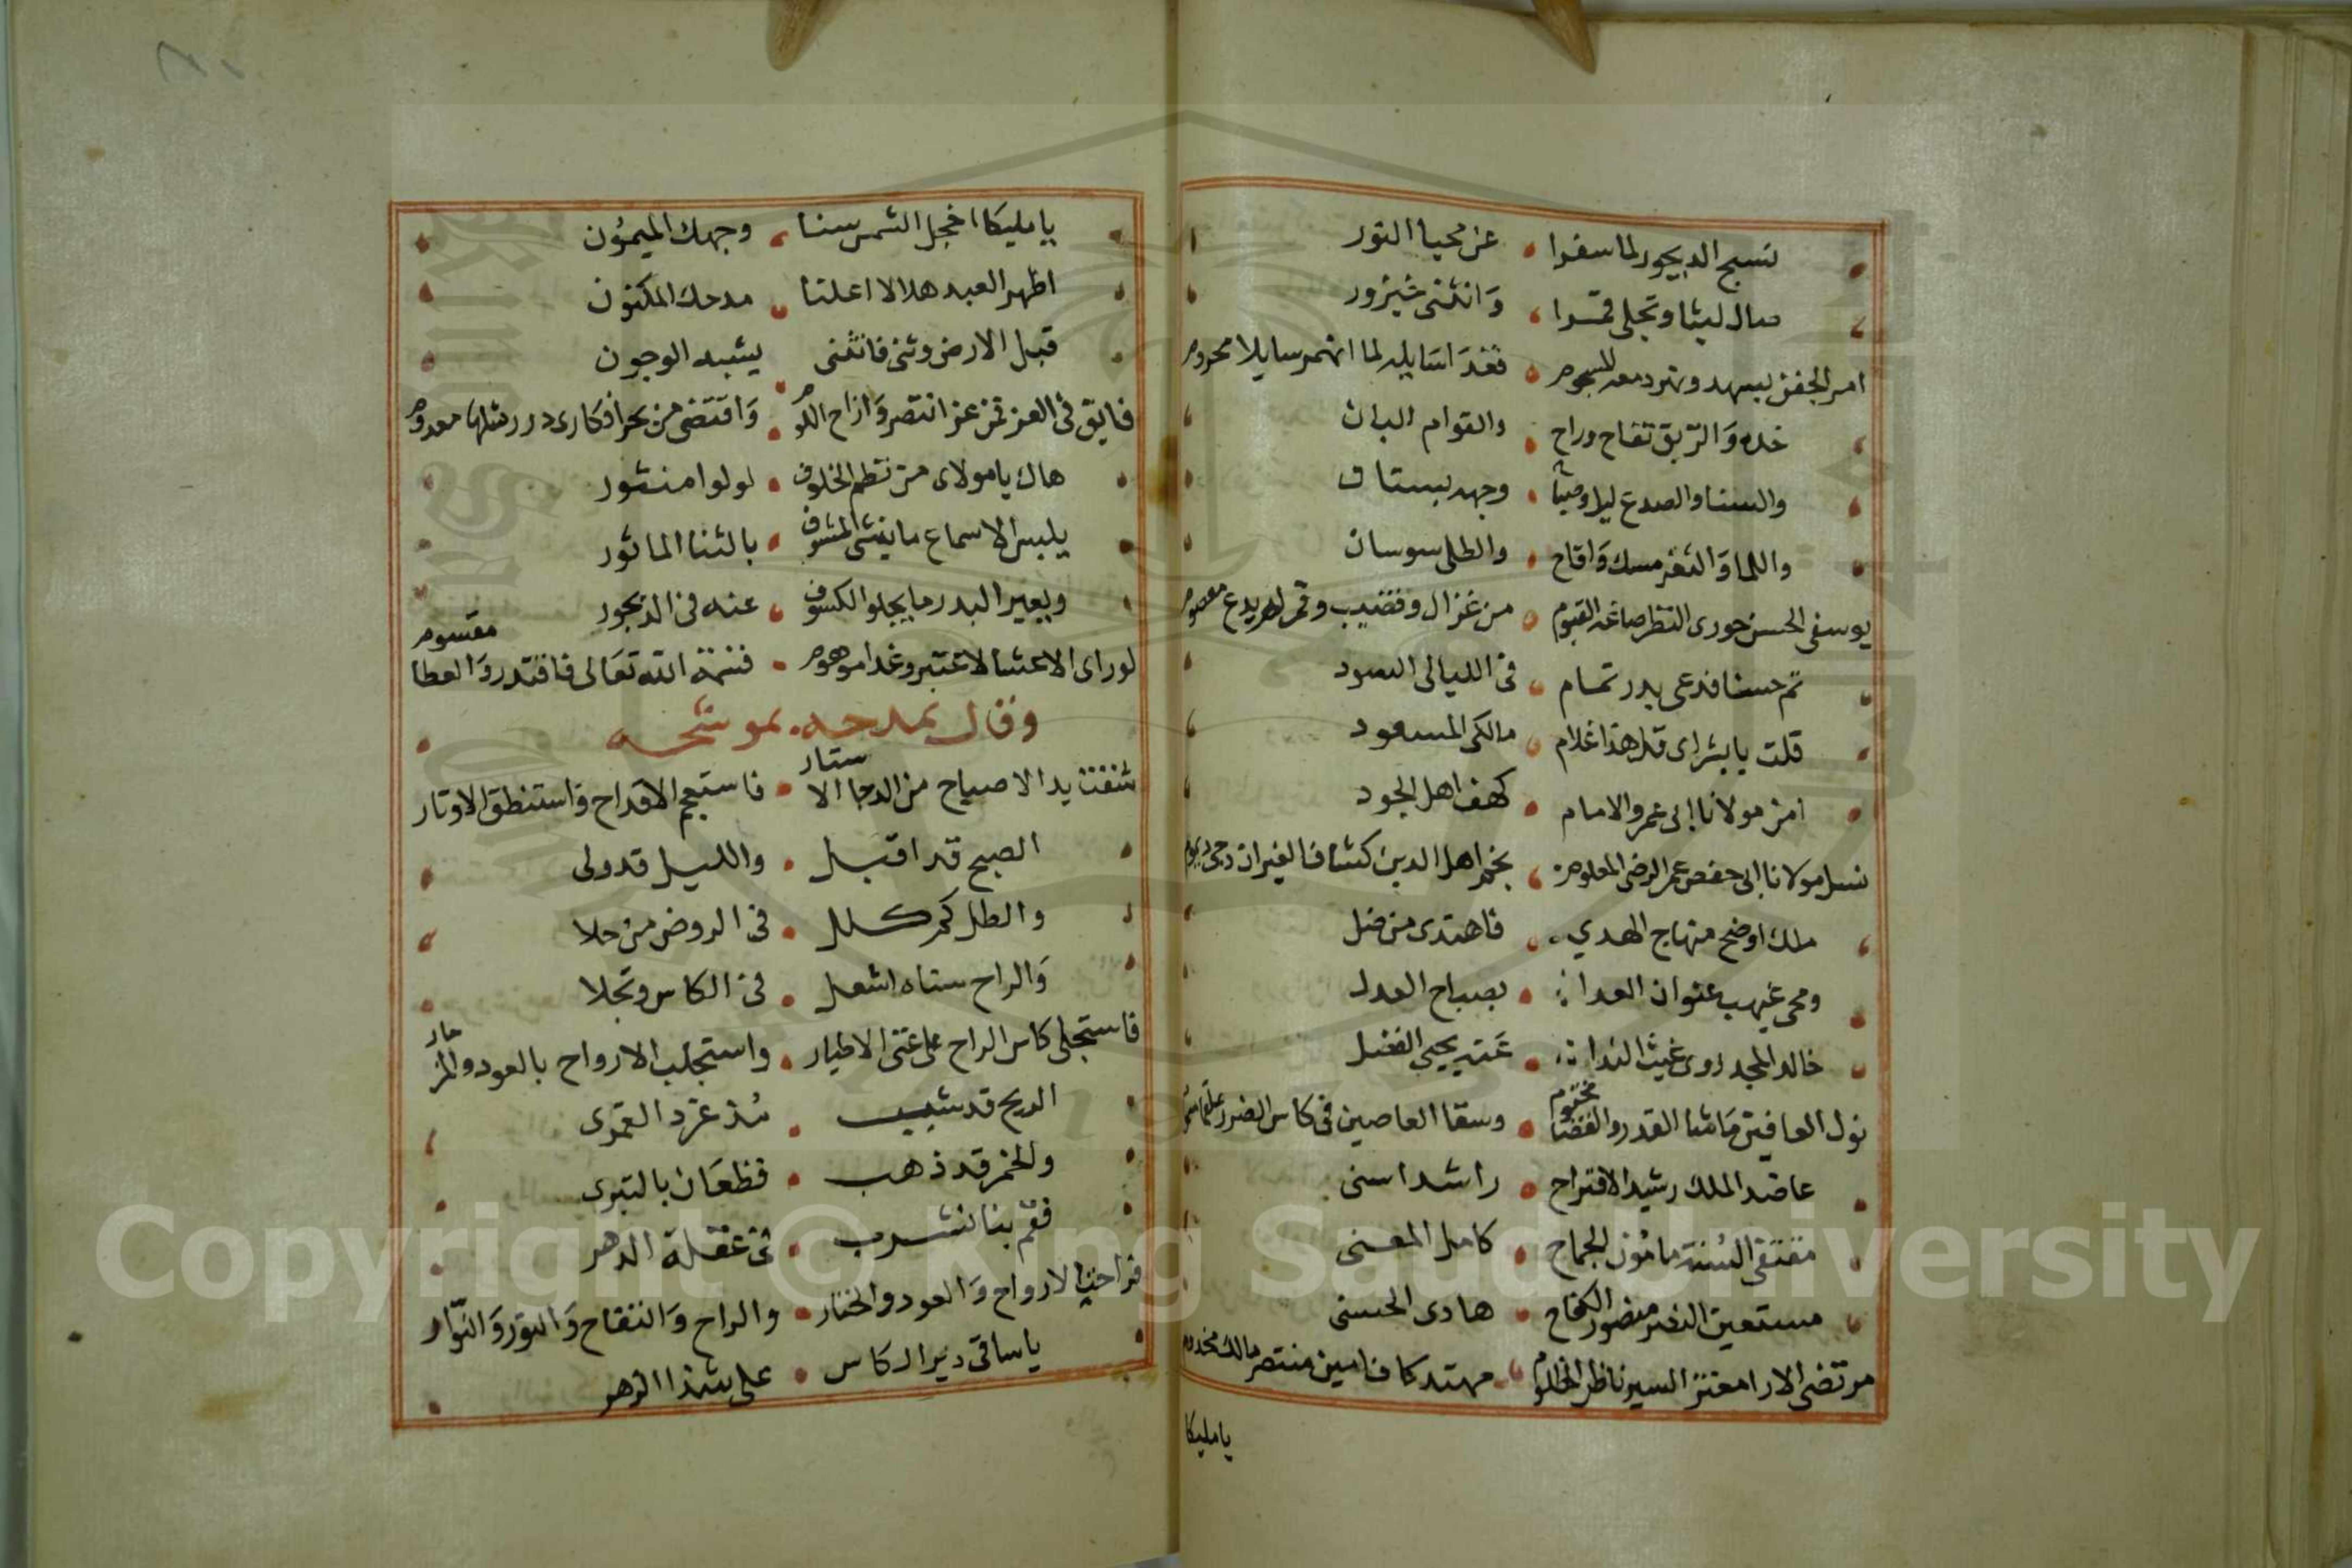 نسج الديجور لما سفرا عن محيا النور
صال ليثا وتجلى قمرا وانثنى خيزور
امر الجفن بسهد ونهر دمعه المسجوم فغدا سايله لما انهمر سايلا محروم
خده والريق تفاح وراح والقوام البان
والسنا والصدغ ليل وصباح وجهه بستان
واللما والثغر مسك واقاح والطلى سوسان
يوسفي الحسن حوري النظر صاغه القيوم من غزال وقضيب وقمر لم يدع معصوم
تم حسنا فدعى بدر تمام في الليالي السود
قلت يا بشراى قل هذا غلام مالكي المسعود
امن مولانا ابى عمرو الامام كهف اهل الجود
نسل مولانا ابى حفص عمر الرضى المعلوم نجم اهل الدين كشاف الغير ان دجى ديموم
ملك اوضح منهاج الهدي فاهتدى من ضل
ومحى غيهب عنوان العدا بصباح العدل
خالد المجد روى غيث الندا عنه يحيى الفضل
نول العافين ما شا القدر والقضا محتوم وسقا العاصين في كاس الضرر علقما مسموم
عاضد الملك رشيد الاقتراح راشد اسنى
مقتفى السنة مامون الجماح كامل المعنى
مستعين النصر منصور الكفاح هادى الحسنى
مرتضى الارا معتز السير ناظر المظلوم مهتد كاف امين منتصر مالك مخدوم
يا مليكا
يا مليكا اخجل الشمس سنا وجهك الميمون
اظهر العبد هلالا اعلنا مدحك المكنون
قبل الارض وثنى فانثنى يشبه الوجون
فابق فى العز فمن عز انتصر وازاح اللوم واقتضى من بحر افكارى درر مثلها معدوم
هاك يا مولاى من نظم الخلوف لولوا منثور
يلبس الاسماع ما ينشى المشوف بالثنا الماثور
ويعير البدر ما يجلو الكسوف عنه في الديجور
لو راى الاعشا لاعتبر وغدا موهوم قسمة الله تعالى فاقتدر والعطا مقسوم
وقال يمدحه بموشحه
شفت يد الاصباح من الدجا الاستار فاستعجم الاقداح واستنطق الاوتار
الصبح قد اقبل والليل قد ولى
والطل كم كلل في الروض من حلا
والراح سناه اشعل في الكاس وتجلا
فاستجلى كاس الراح على غنى الاطيار واستجلب الارواح بالعود والمزمار
الريح قد شبب مذ غرد القمرى
والخمر قد ذهب قطعان بالتبرى
فقم بنا نشرب في غفلة الدهر
فراحة الارواح والعود والخمار والراح والتفاح والنور والنوار
يا ساقى دير الكاس على شذا الزهر
Copyright © King Saud University